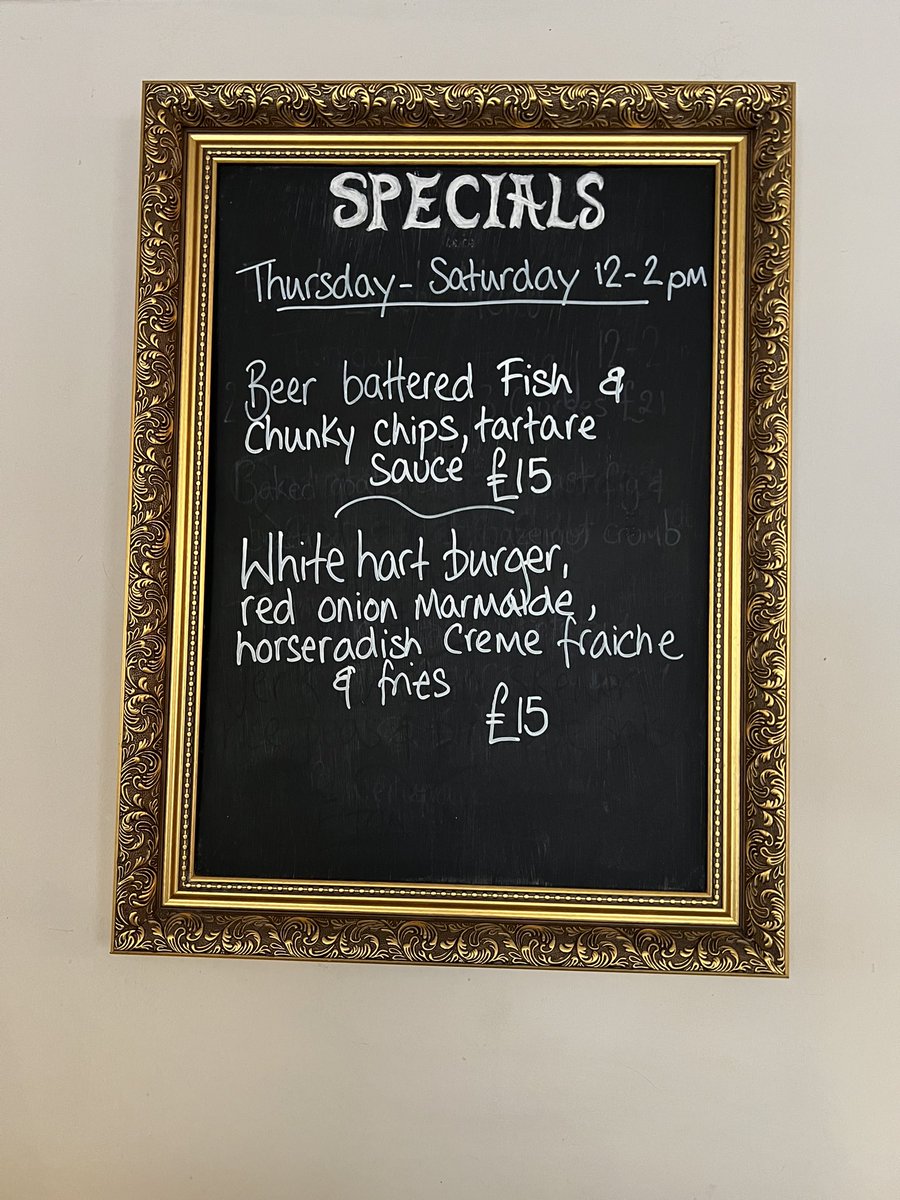 SPECIALS
Thursday - Saturday 12-2pm
Beer battered Fish &
Chunky chips, tartare
Sauce £15
White hart burger,
red onion Marmalde,
horseradish Creme fraiche
& fries
£15